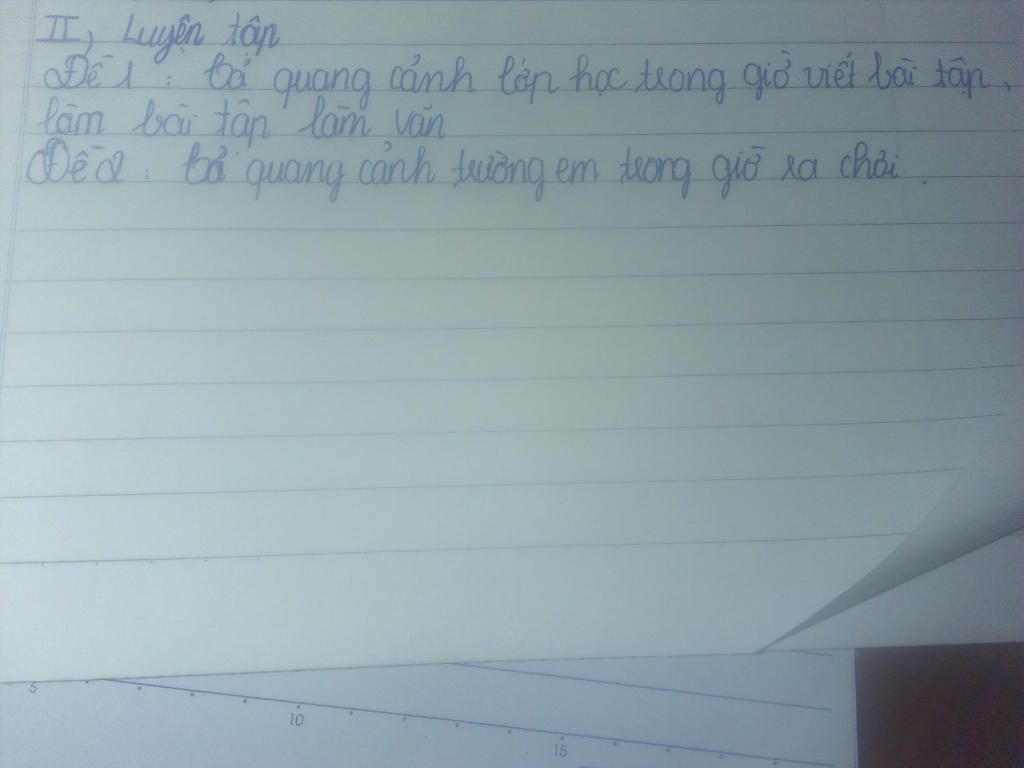 II, Luyện tập
Đề 1 : Tả quang cảnh lớp học trong giờ viết bài tập,
làm bài tập làm văn
Đề 2 : Tả quang cảnh trường em trong giờ ra chơi.
5
10
15